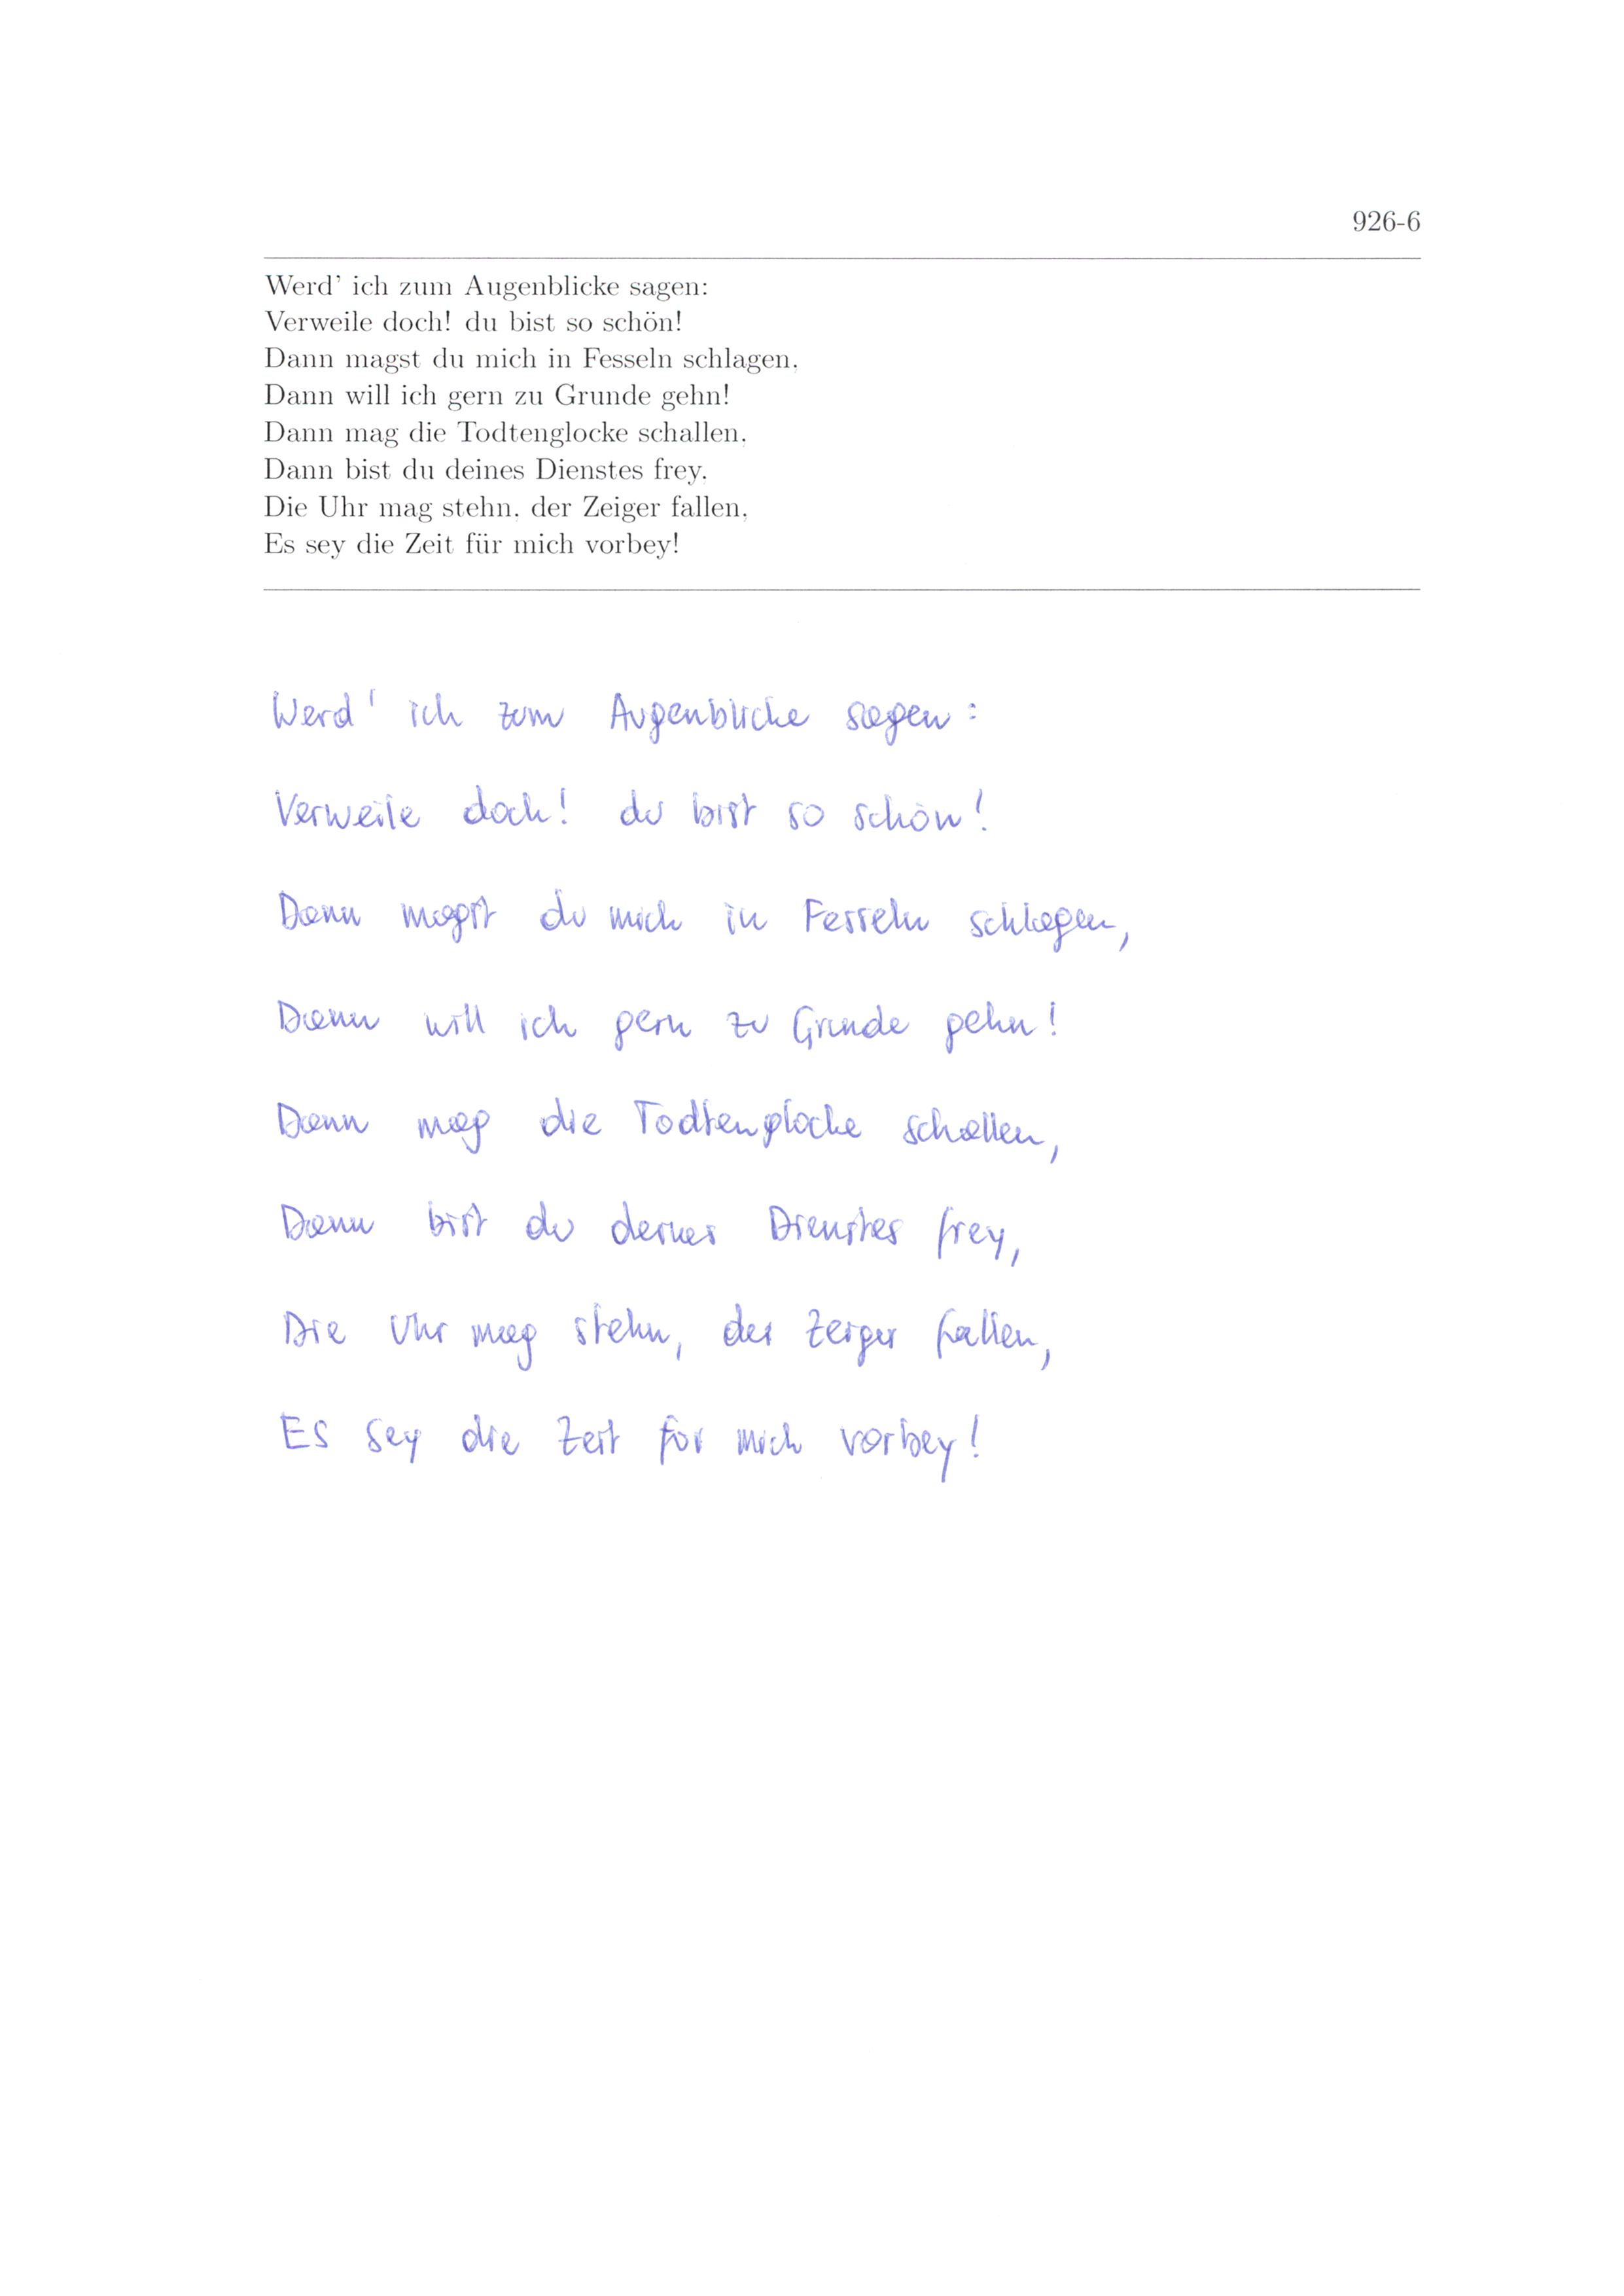 926-6
Werd' ich zum Augenblicke sagen:
Verweile doch! du bist so schön!
Dann magst du mich in Fesseln schlagen,
Dann will ich gern zu Grunde gehn!
Dann mag die Todtenglocke schallen,
Dann bist du deines Dienstes frey,
Die Uhr mag stehn, der Zeiger fallen,
Es sey die Zeit für mich vorbey!
Werd' ich zum Augenblicke sagen:
Verweile doch! du bist so schön!
Dann magst du mich in Fesseln schlagen,
Dann will ich gern zu Grunde gehn!
Dann mag die Todtenglocke schallen,
Dann bist du deines Dienstes frey,
Die Uhr mag stehn, der Zeiger fallen,
Es sey die Zeit für mich vorbey!